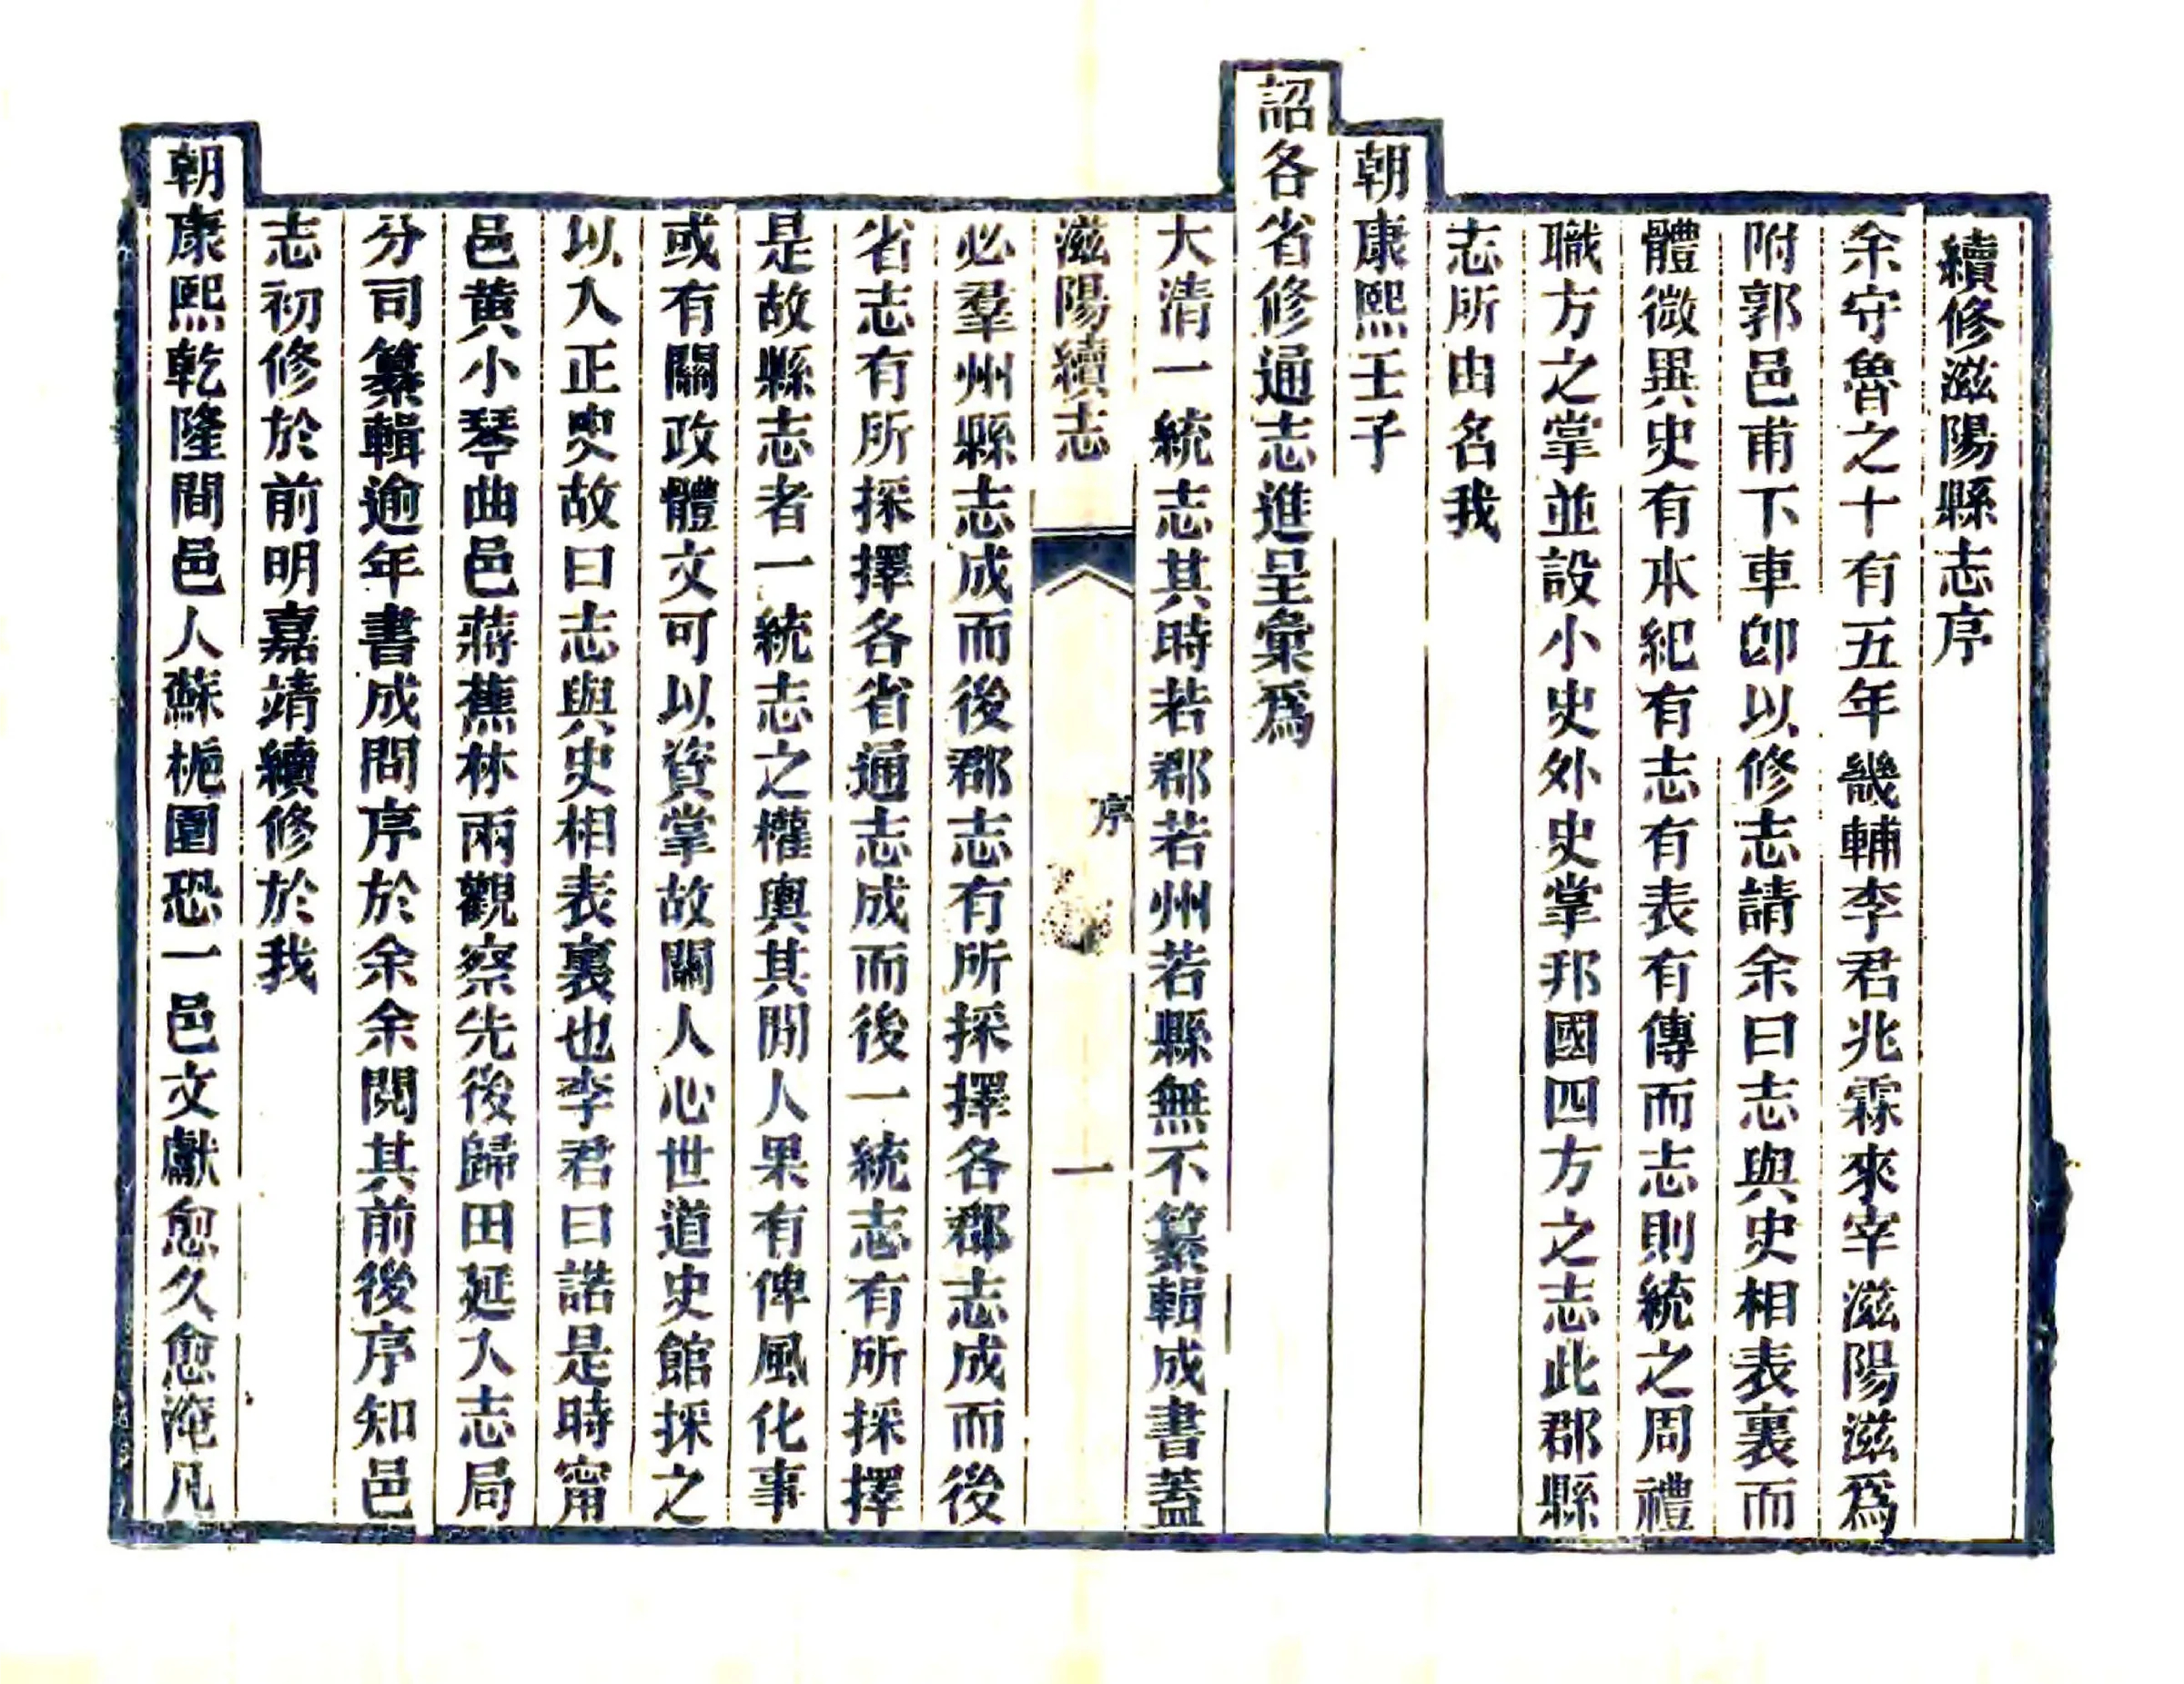 續修滋陽縣志序
余守魯之十有五年畿輔李君兆霖來宰滋陽滋爲
附郭邑甫下車卽以修志請余曰志與史相表裏而
體微異史有本紀有志有表有傳而志則統之周禮
職方之掌並設小史外史掌邦國四方之志此郡縣
志所由名我
朝康熙壬子
詔各省修通志進呈彙爲
大清一統志其時若郡若州若縣無不纂輯成書蓋
滋陽續志
序
一
必羣州縣志成而後郡志有所採擇各郡志成而後
省志有所採擇各省通志成而後一統志有所採擇
是故縣志者一統志之權輿其閒人果有俾風化事
或有關政體文可以資掌故關人心世道史館採之
以入正史故曰志與史相表裏也李君曰諾是時甯
邑黄小琴曲邑蔣蕉林兩觀察先後歸田延入志局
分司纂輯逾年書成問序於余余閱其前後序知邑
志初修於前明嘉靖續修於我
朝康熙乾隆間邑人蘇桅圍恐一邑文獻愈久愈淹凡